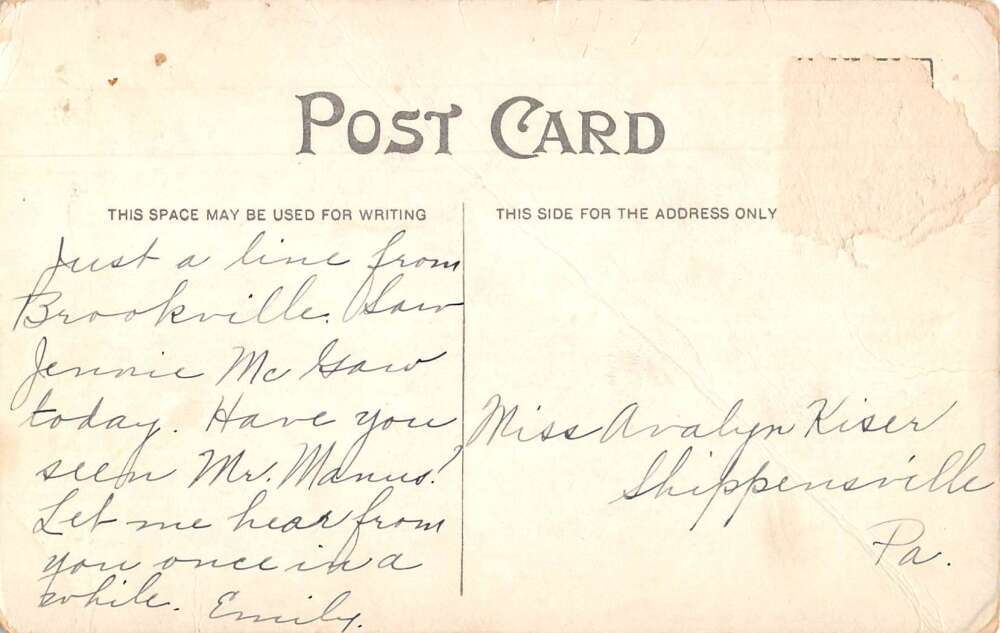 POST CARD
THIS SPACE MAY BE USED FOR WRITING
Just a line from
Brookville. Saw
Jennie McGaw
today. Have you
seen Mr. Manus?
Let me hear from
you once in a
while. Emily.
THIS SIDE FOR THE ADDRESS ONLY
Miss Avalyn Kiser
Shippensville
Pa.